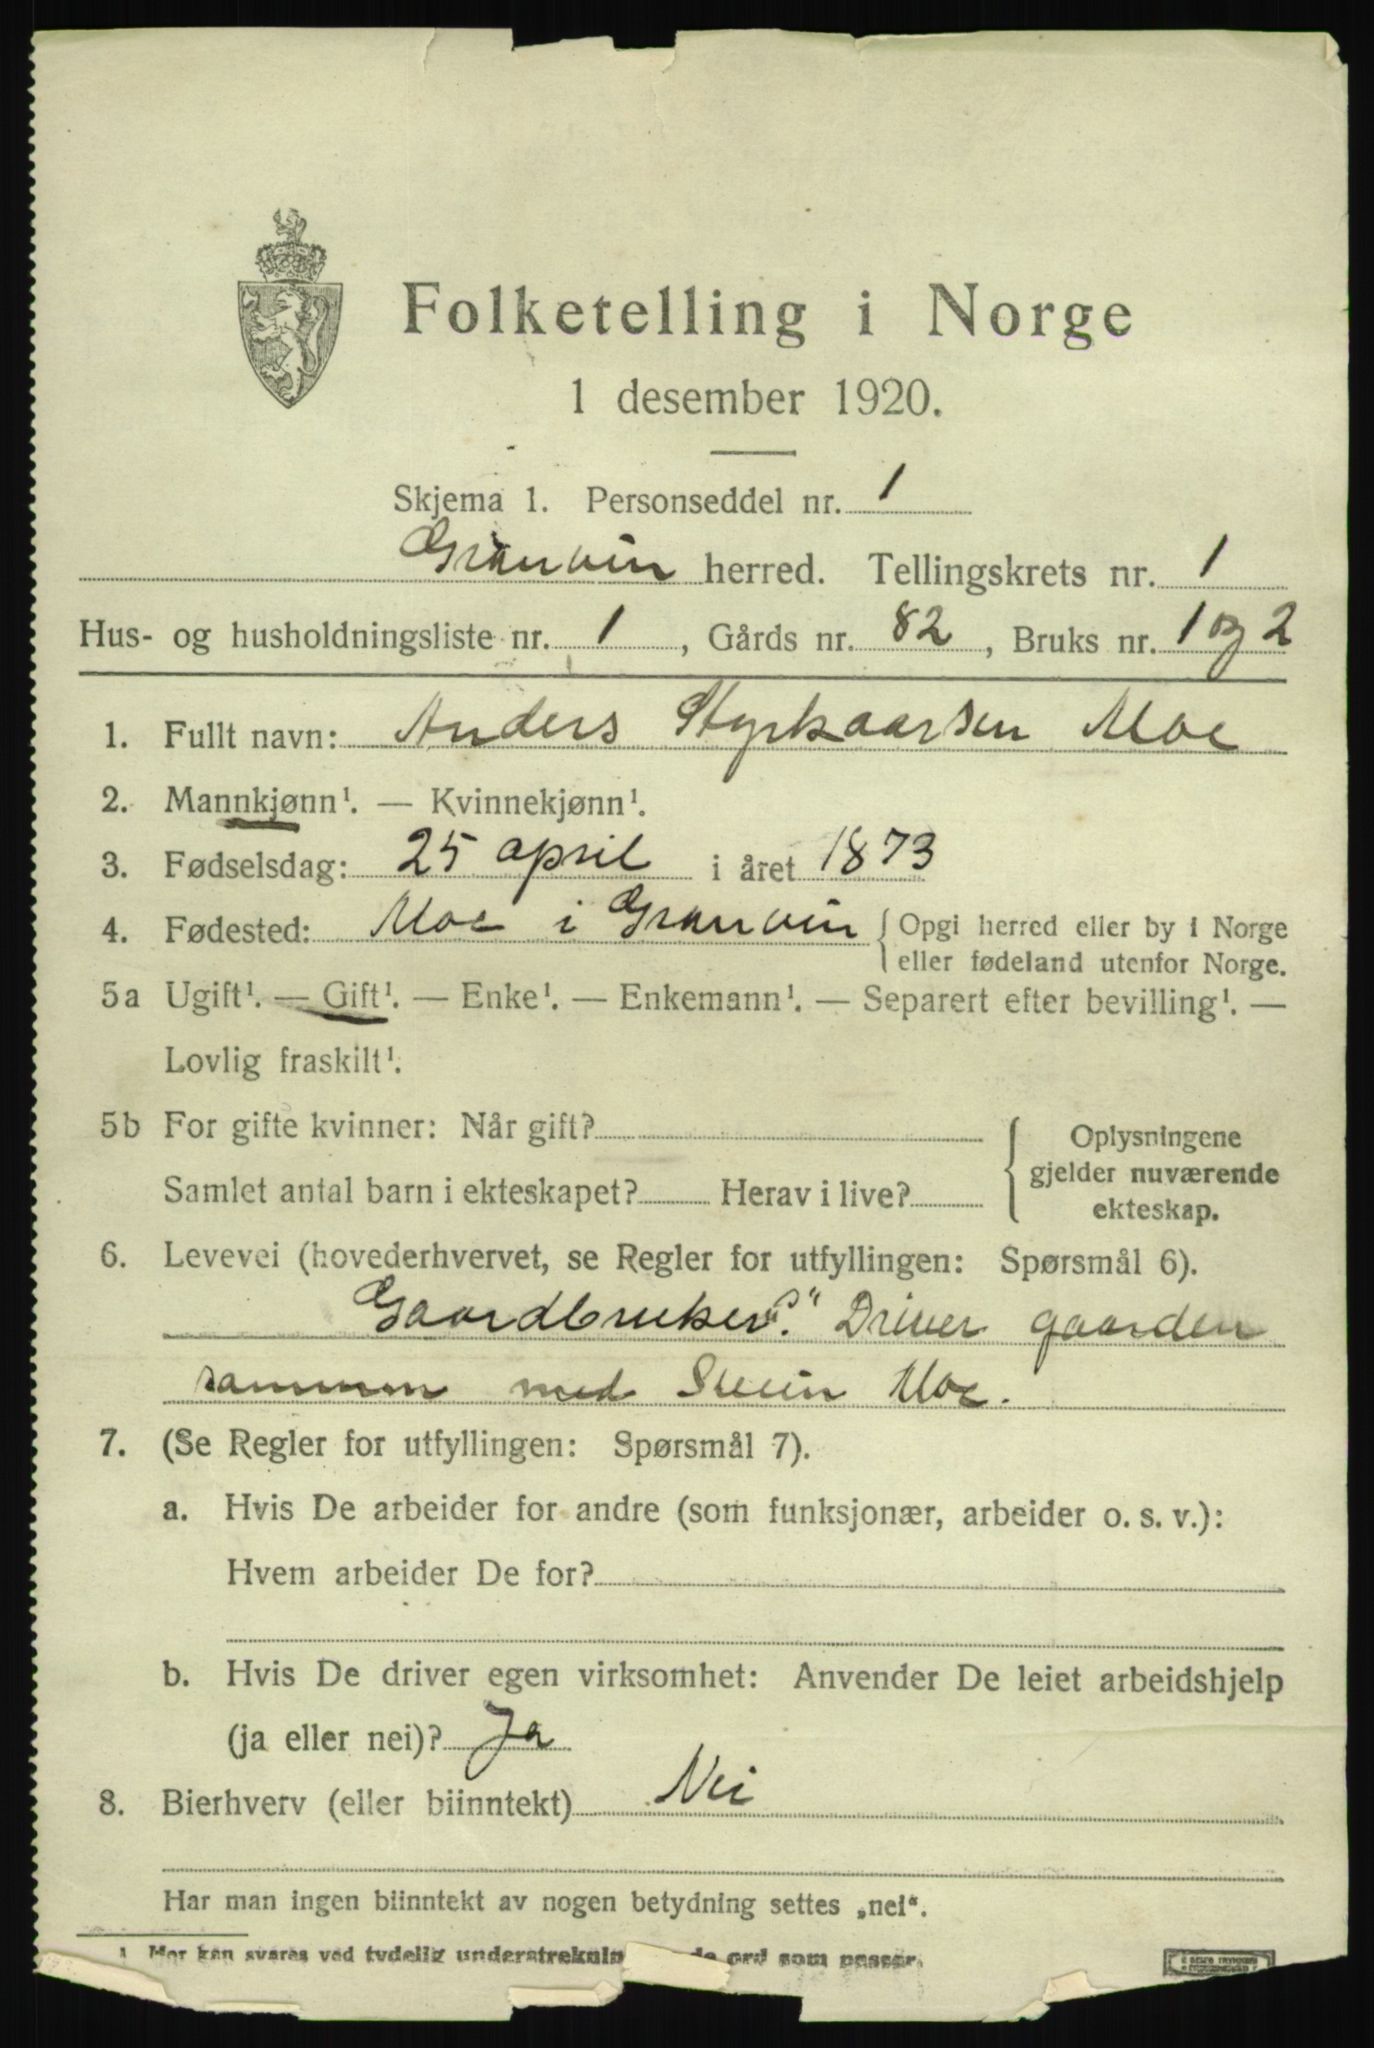 Folketelling i Norge
1 desember 1920.
Skjema 1. Personseddel nr. 1
Granvin herred. Tellingskrets nr. 1
Hus- og husholdningsliste nr. 1, Gårds nr. 82, Bruks nr. 1 og 2
1. Fullt navn: Anders Styrkaarsen Moe
2. Mannkjønn¹. — Kvinnekjønn¹.
3. Fødselsdag: 25 april i året 1873
4. Fødested: Moe i Granvin { Opgi herred eller by i Norge
eller fødeland utenfor Norge.
5a Ugift¹. — Gift¹. — Enke¹. — Enkemann¹. — Separert efter bevilling¹. —
Lovlig fraskilt¹.
5b For gifte kvinner: Når gift?
Samlet antal barn i ekteskapet? Herav i live?
{ Oplysningene
gjelder nuværende
ekteskap.
6. Levevei (hovederhvervet, se Regler for utfyllingen: Spørsmål 6).
Gaardbruker „S.“ Driver gaarden
sammen med Svein Moe.
7. (Se Regler for utfyllingen: Spørsmål 7).
a. Hvis De arbeider for andre (som funksjonær, arbeider o. s. v.):
Hvem arbeider De for?
b. Hvis De driver egen virksomhet: Anvender De leiet arbeidshjelp
(ja eller nei)? Ja
8. Bierhverv (eller biinntekt) Nei
Har man ingen biinntekt av nogen betydning settes „nei“.
1 Her kan svares ved tydelig understreknin de ord som passer.